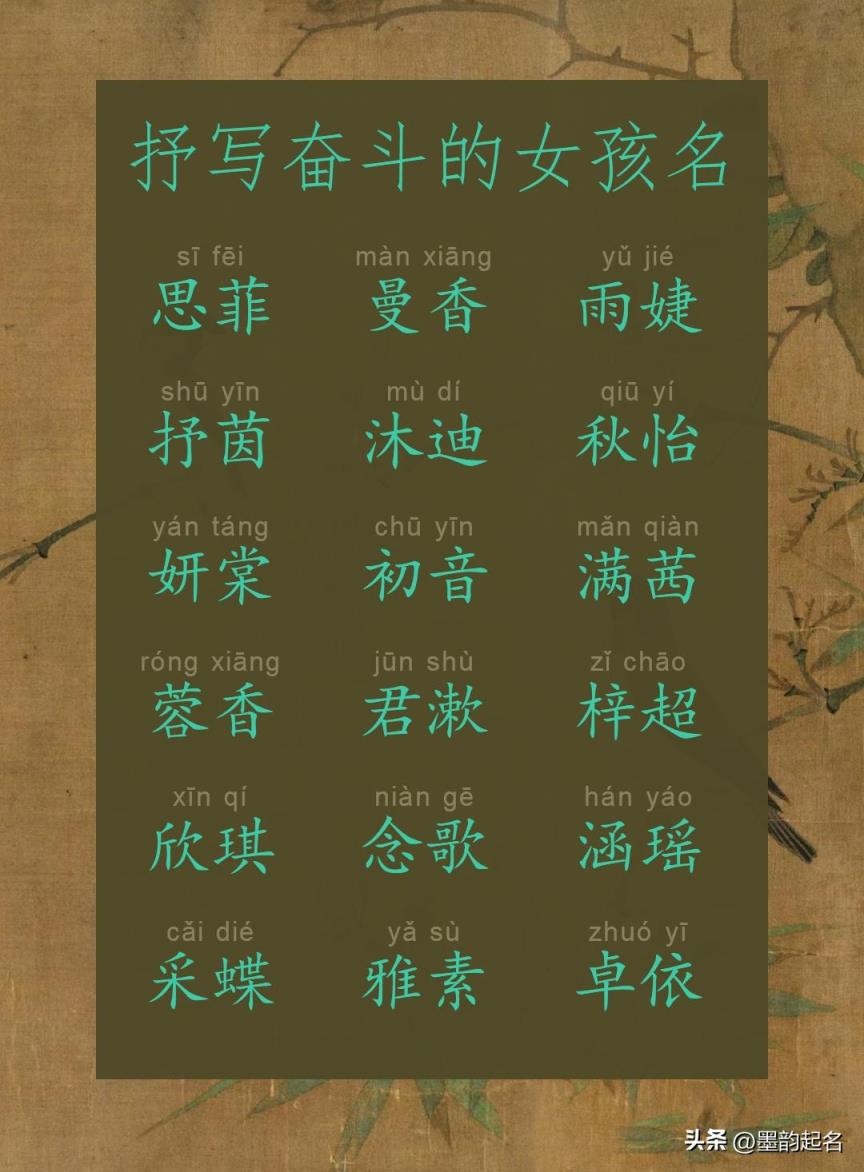 抒写奋斗的女孩名
sī fēi màn xiāng yǔ jié
思菲 曼香 雨婕
shū yīn mù dí qiū yí
抒茵 沐迪 秋怡
yán táng chū yīn mǎn qiàn
妍棠 初音 满茜
róng xiāng jūn shù zǐ chāo
蓉香 君漱 梓超
xīn qí niàn gē hán yáo
欣琪 念歌 涵瑶
cǎi dié yǎ sù zhuó yī
采蝶 雅素 卓依
头条 @墨韵起名